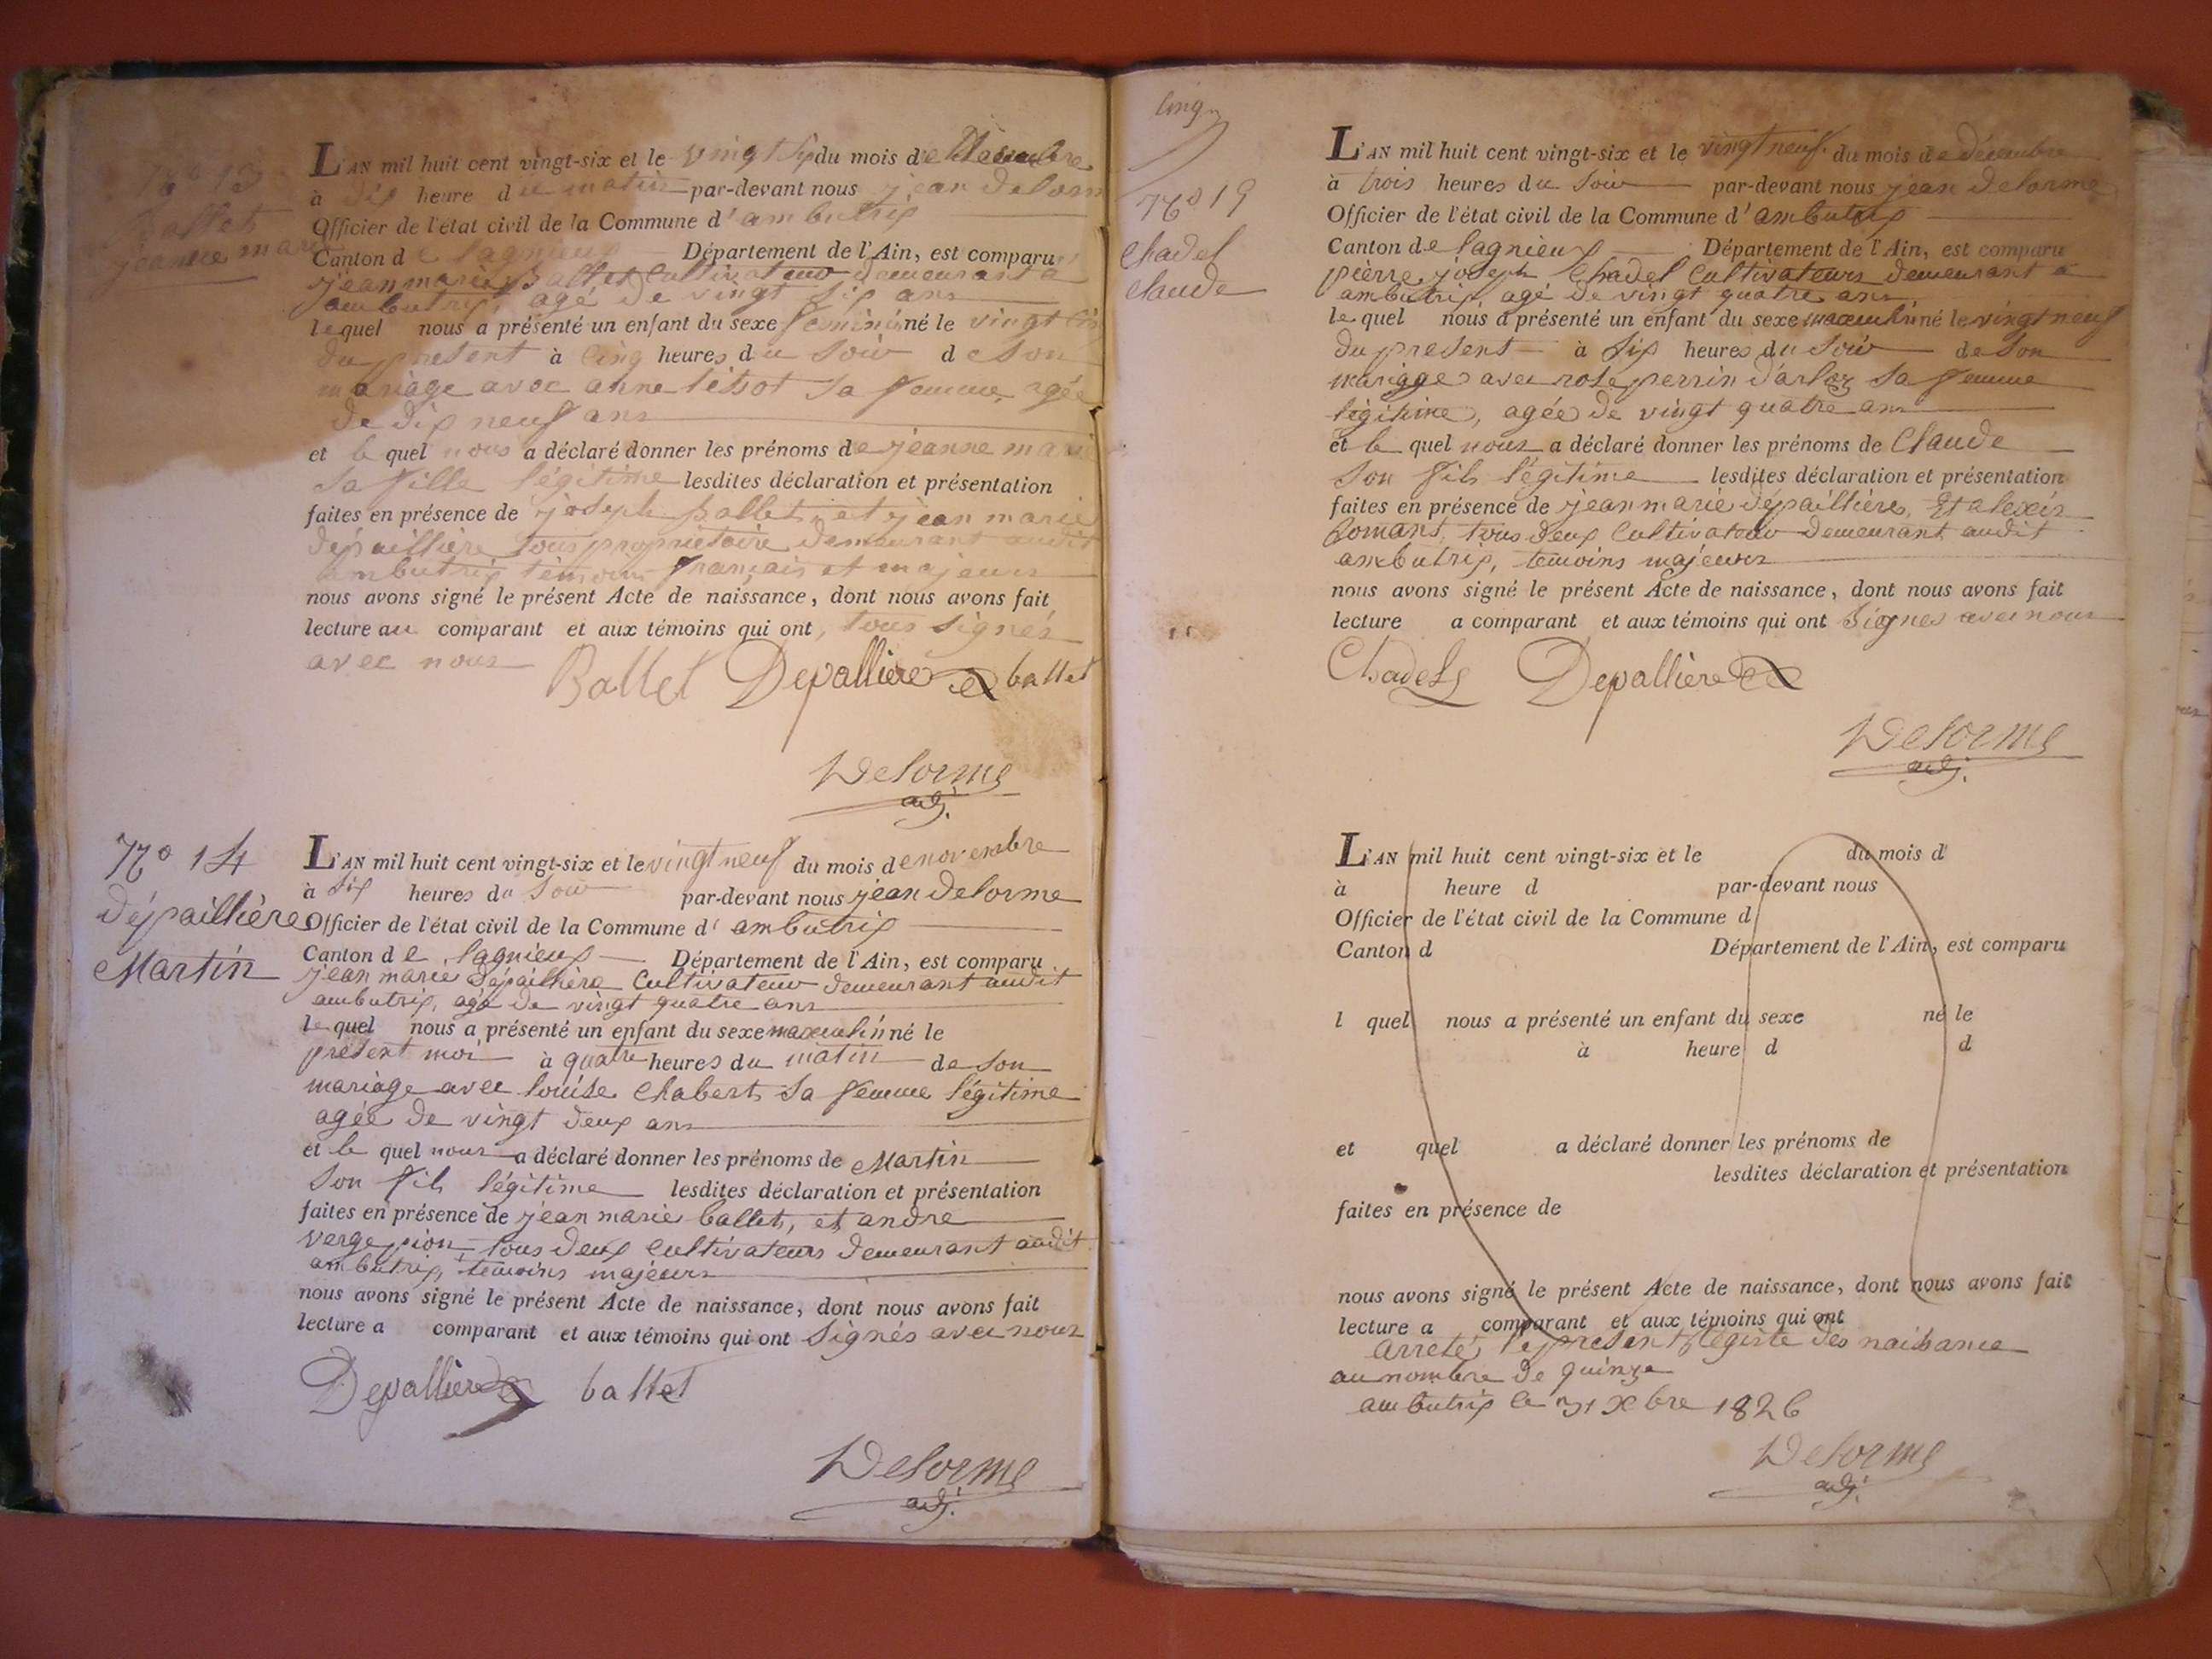 N° 13
Ballet
jeanne marie
L'AN mil huit cent vingt-six et le vingt six du mois de
à dix heure du matin par-devant nous jean Delorm
Officier de l'état civil de la Commune d'ambutrix
Canton de lagnieux Département de l'Ain, est comparu
jean marie Ballet Cultivateur demeurant a
ambutrix, agé de vingt six ans
lequel nous a présenté un enfant du sexe feminin né le vingt
du present à cinq heures du soir de son
mariage avec anne sa femme, agée
de dix neuf ans
et le quel nous a déclaré donner les prénoms de jeanne marie
sa fille légitime lesdites déclaration et présentation
faites en présence de joseph ballet, et jean marie
dépaillière tous propriétaire demeurant audit
ambutrix témoins français et majeurs
nous avons signé le présent Acte de naissance, dont nous avons fait
lecture au comparant et aux témoins qui ont, tous signés
avec nous
Ballet Depallière ballet
Delorme
adj.
N° 14
Dépaillière
Martin
L'AN mil huit cent vingt-six et le vingt neuf du mois de novembre
à six heures du soir par-devant nous jean Delorme
Officier de l'état civil de la Commune d'ambutrix
Canton de lagnieux Département de l'Ain, est comparu
jean marie dépaillière Cultivateur demeurant audit
ambutrix, agé de vingt quatre ans
le quel nous a présenté un enfant du sexe masculin né le
présent moi à quatre heures du matin de son
mariage avec louise Chabert sa femme légitime
agée de vingt deux ans
et le quel nous a déclaré donner les prénoms de Martin
son fils légitime lesdites déclaration et présentation
faites en présence de jean marie ballet, et andre
vergepion, tous deux cultivateurs demeurant audit
ambutrix, temoins majeurs
nous avons signé le présent Acte de naissance, dont nous avons fait
lecture a comparant et aux témoins qui ont signés avec nous
Depallière ballet
Delorme
adj.
cinq
N° 15
Chadel
Claude
L'AN mil huit cent vingt-six et le vingt neuf du mois de décembre
à trois heures du soir par-devant nous jean delorme
Officier de l'état civil de la Commune d'ambutrix
Canton de lagnieux Département de l'Ain, est comparu
pierre joseph Chadel Cultivateurs demeurant a
ambutrix, agé de vingt quatre ans
le quel nous a présenté un enfant du sexe masculin né le vingt neuf
du present à six heures du soir de son
mariage avec rose perrin d'arloz sa femme
légitime, agée de vingt quatre ans
et le quel nous a déclaré donner les prénoms de Claude
son fils légitime lesdites déclaration et présentation
faites en présence de jean marie dépaillières, Et alexis
tous deux Cultivateur demeurant audit
ambutrix, temoins majeurs
nous avons signé le présent Acte de naissance, dont nous avons fait
lecture a comparant et aux témoins qui ont signes avec nous
Chadel Depallière
Delorme
adj.
L'AN mil huit cent vingt-six et le du mois d
à heure d par-devant nous
Officier de l'état civil de la Commune d
Canton d Département de l'Ain, est comparu
l quel nous a présenté un enfant du sexe né le
à heure d d
et quel a déclaré donner les prénoms de
lesdites déclaration et présentation
faites en présence de
nous avons signé le présent Acte de naissance, dont nous avons fait
lecture a comparant et aux témoins qui ont
arreté le present Registe des naissance
au nombre de quinze
ambutrix le 31 Xbre 1826
Delorme
adj.